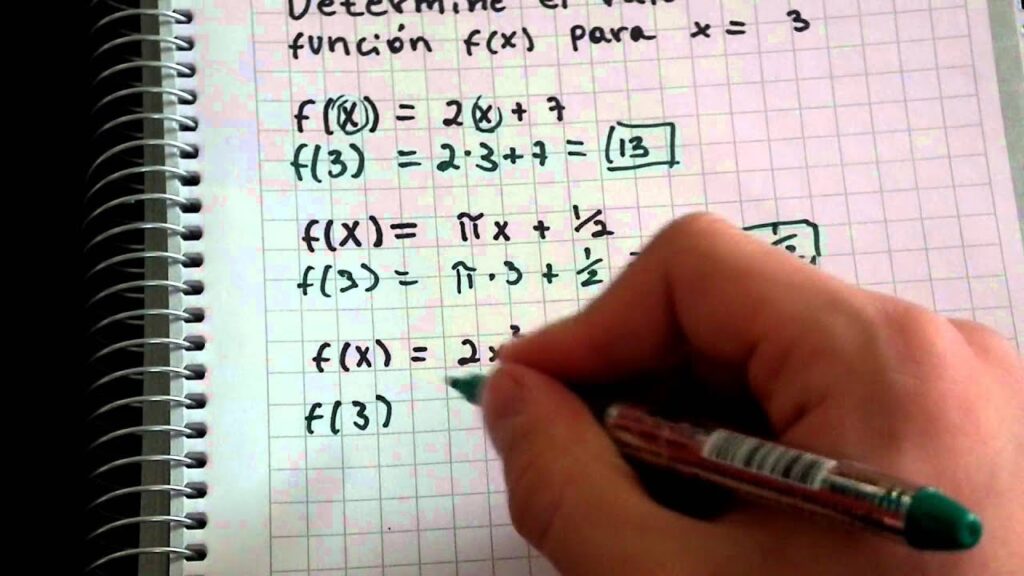 Determine el
función f(x) para x = 3
f(x) = 2x + 7
f(3) = 2·3+7 = 13
f(x) = πx + 1/2
f(3) = π·3 + 1/2 =
f(x) = 2x²
f(3)